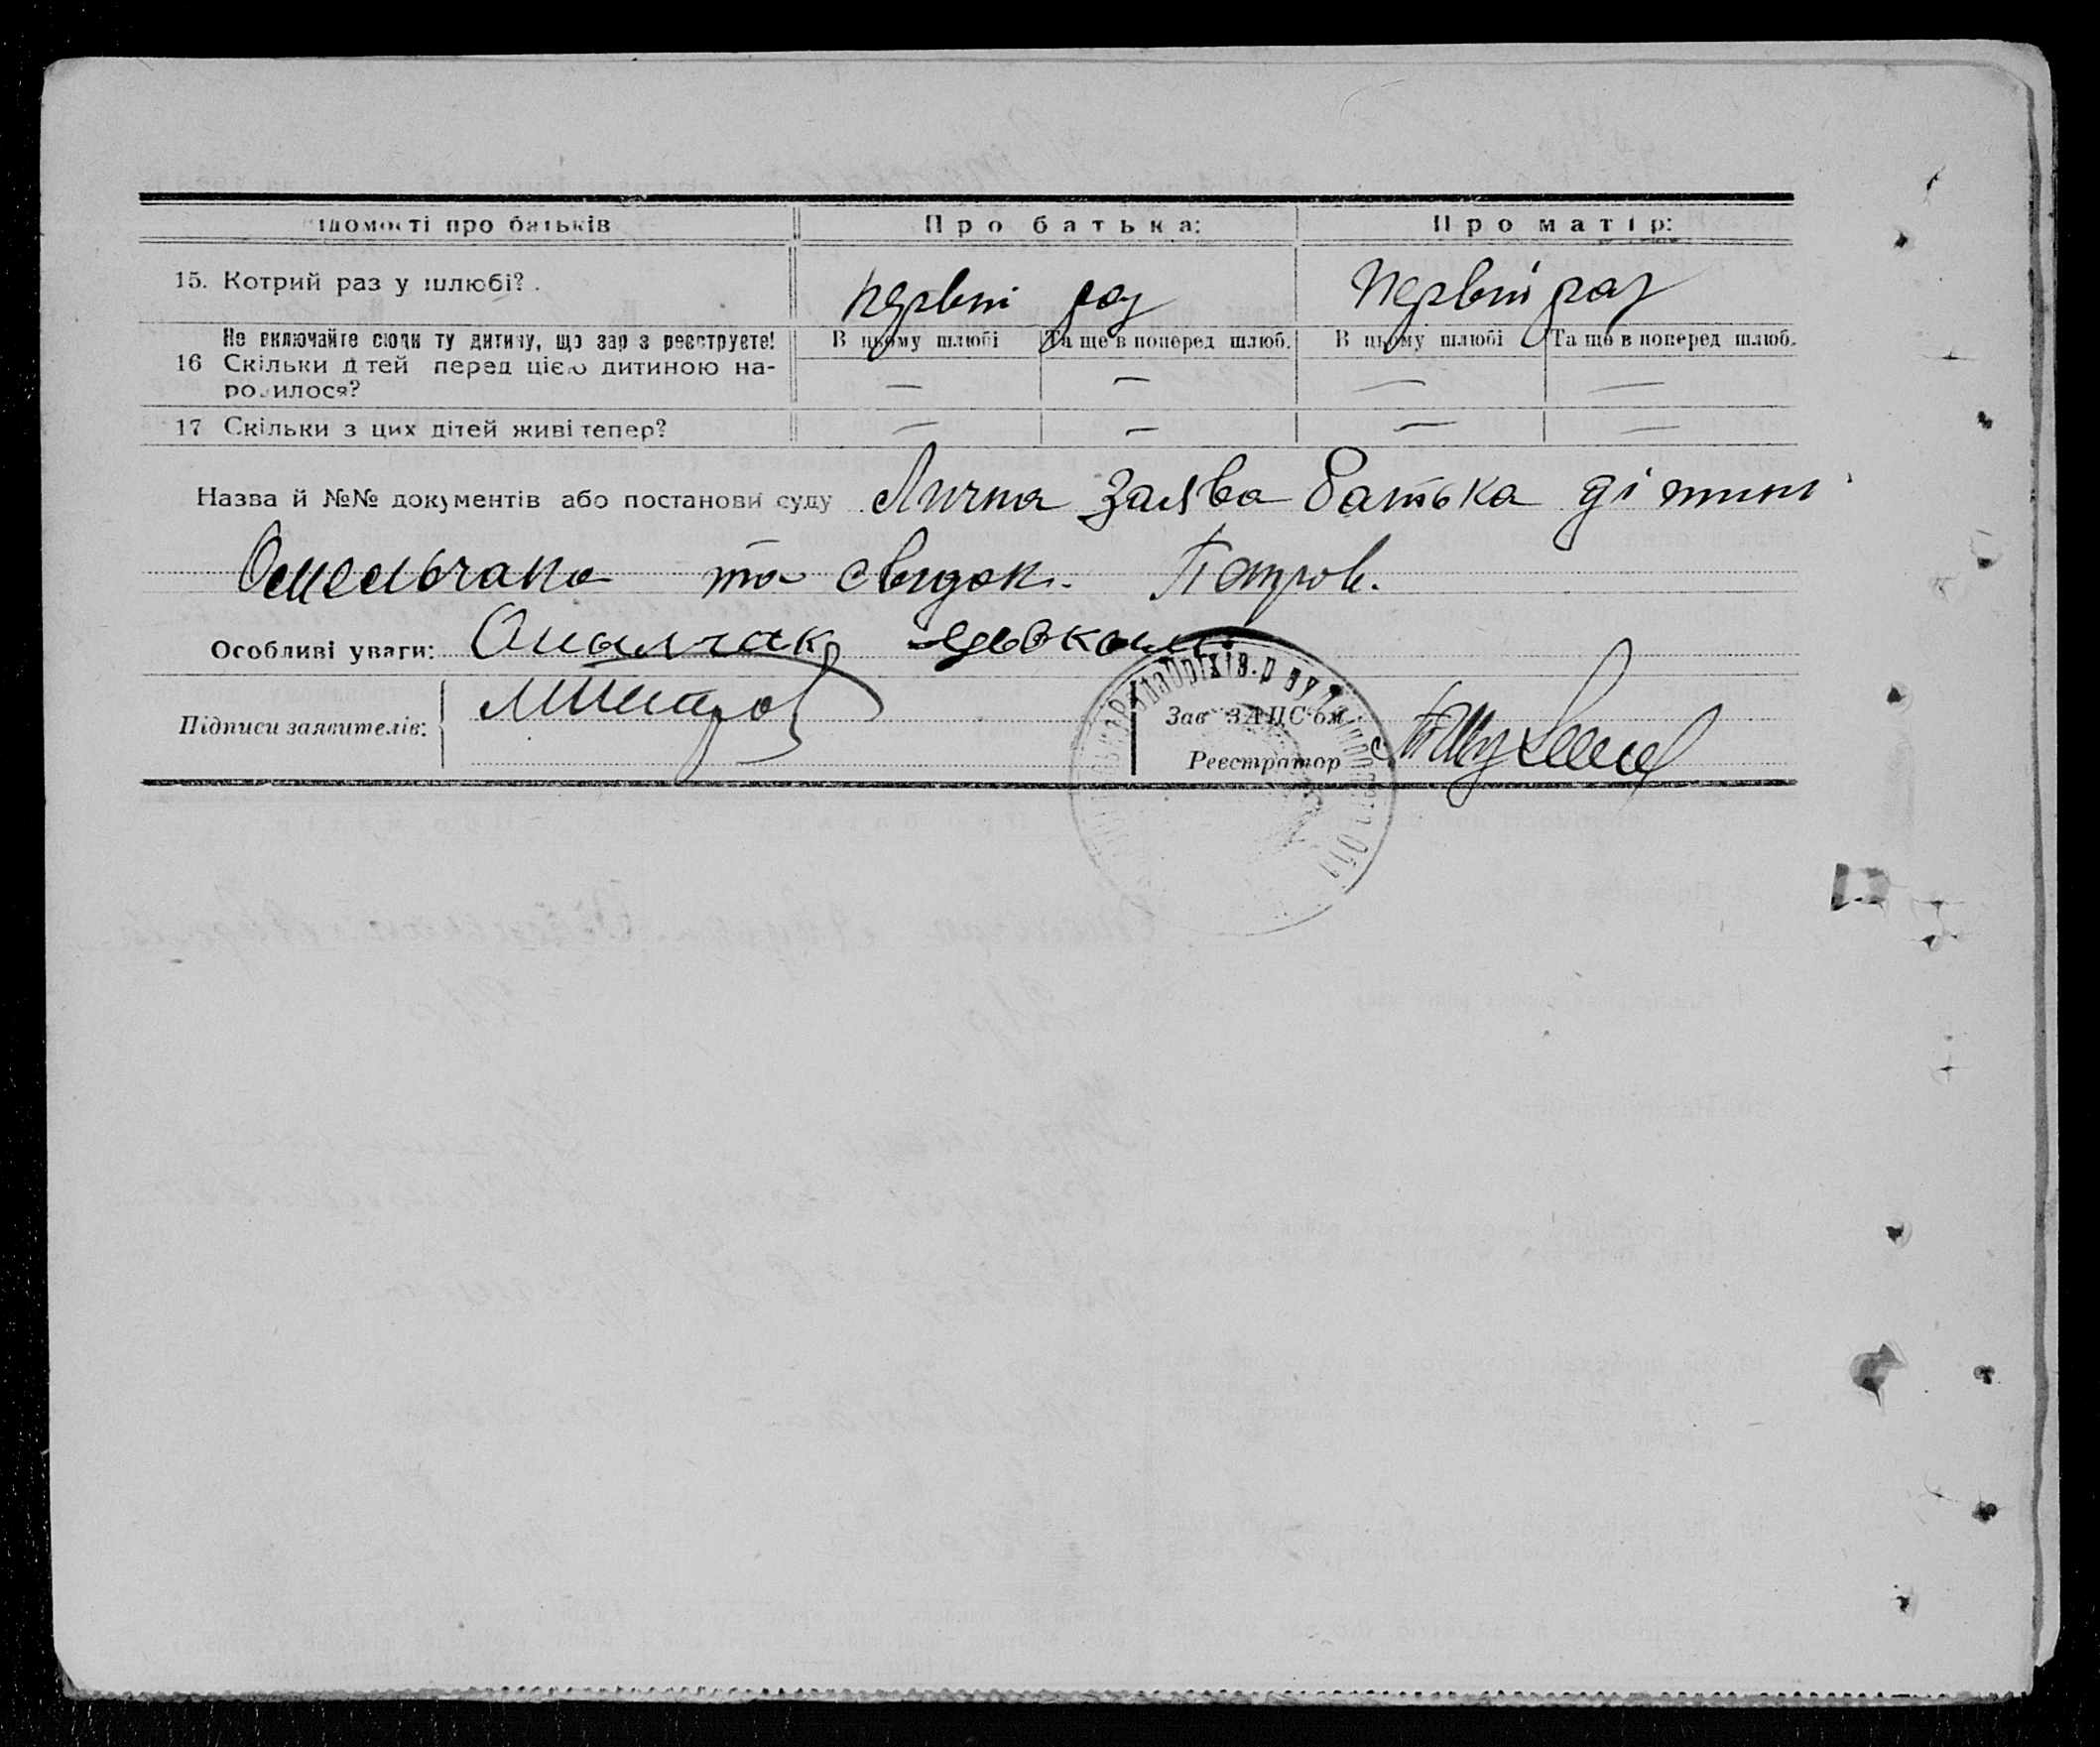 ідомості про батьків Про батька: Про матір:
15. Котрий раз у шлюбі? первий раз Первий раз
Не включайте сюди ту дитину, що зараз реєструєте! В цьому шлюбі Та ще в поперед шлюб. В цьому шлюбі Та ще в поперед шлюб.
16 Скільки дітей перед цією дитиною на- — — — —
родилося?
17 Скільки з цих дітей живі тепер? — — — —
Назва й №№ документів або постанови суду Лична заява батька дітини
Омельчака та свидок. Петров.
Особливі уваги:
Підписи заявителів: МПетров
Зав ЗАЦС'ом
Реєстратор